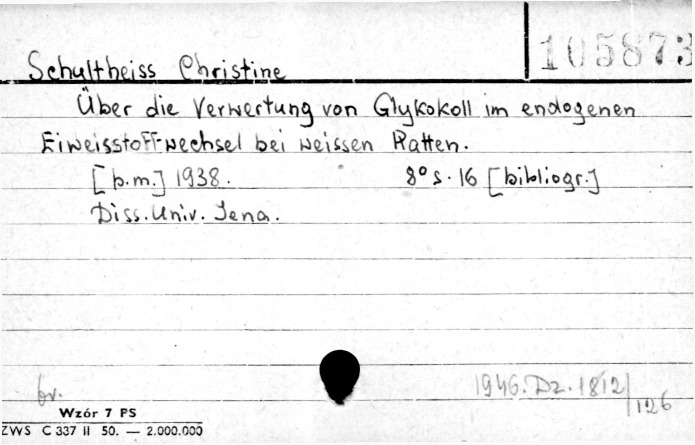 105873
Schultheiss Christine
Über die Verwertung von Glykokoll im endogenen
Eiweisstoffwechsel bei weissen Ratten.
[b.m.] 1938. 8° s. 16 [bibliogr.]
Diss. Univ. Jena.
br. 1946. Dz. 1812/126
Wzór 7 PS
ZWS C 337 II 50. — 2.000.000